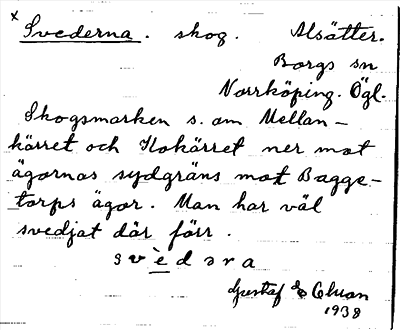 x Svederna. skog. Alsätter.
Borgs sn
Norrköping. Ögl.
Skogsmarken s. om Mellan-
kärret och Kokärret ner mot
ägornas sydgräns mot Bagge-
torps ägor. Man har väl
svedjat där förr.
svèdəra
Gustaf
1938